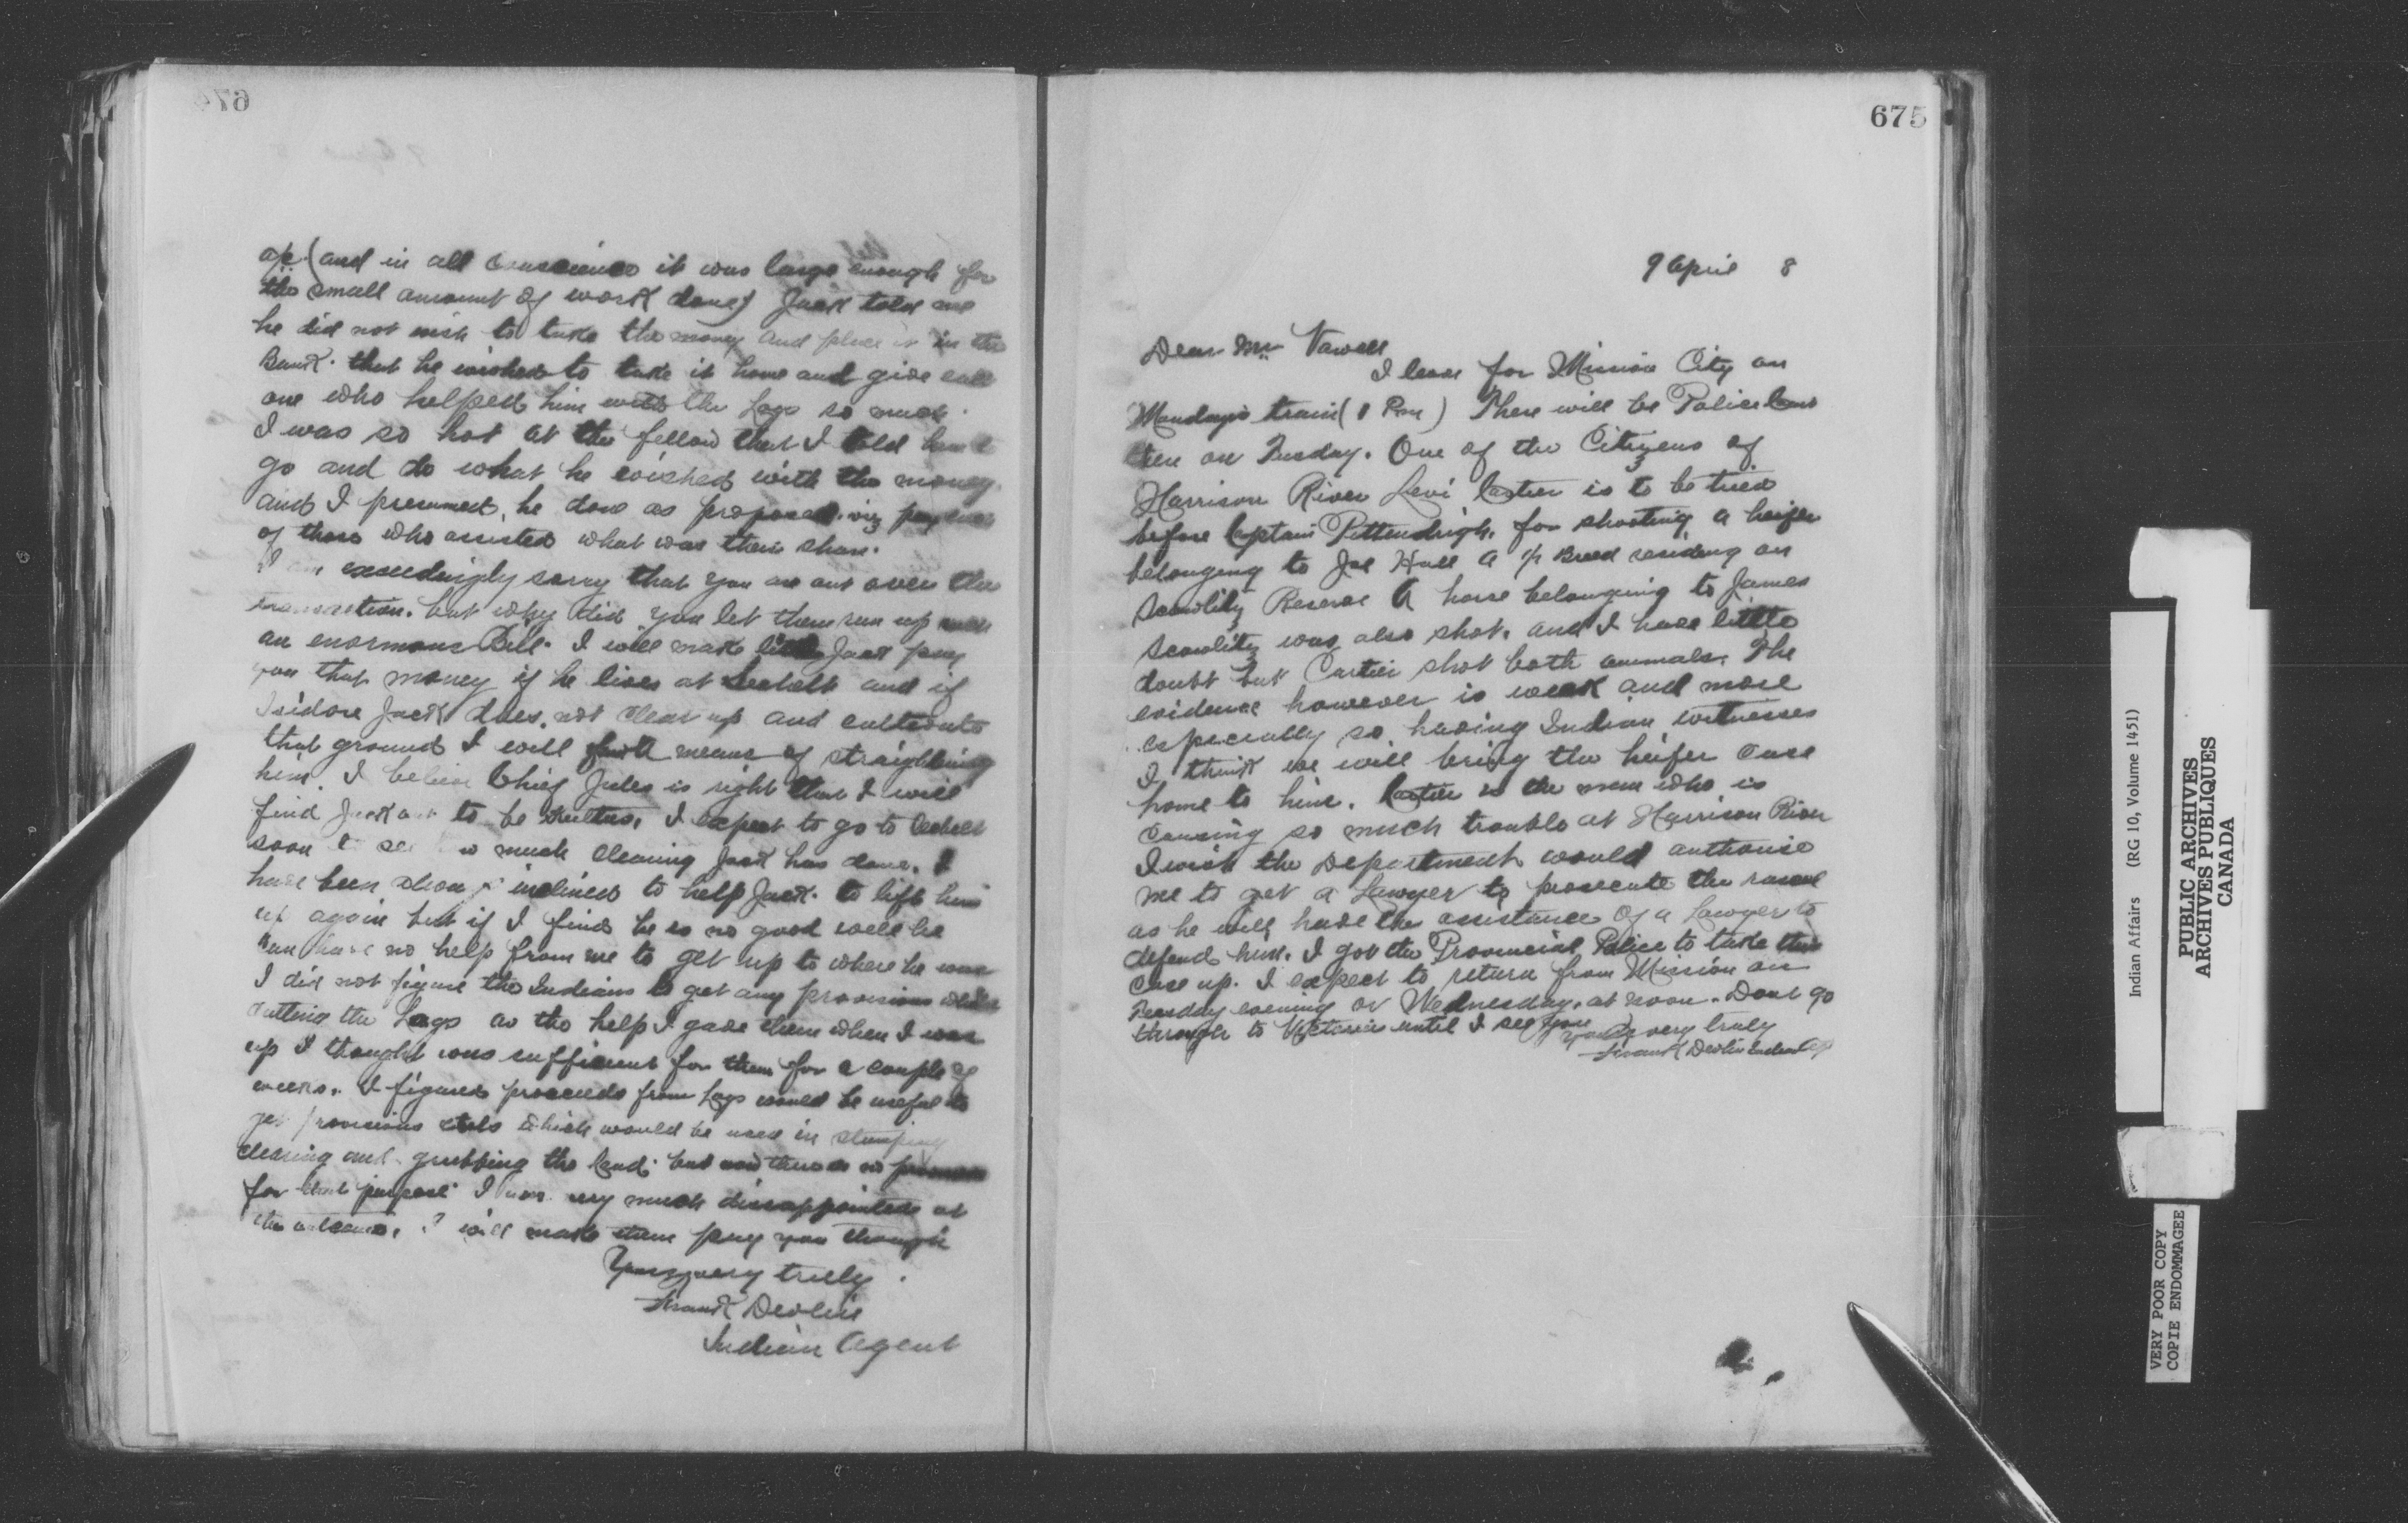 674
a/c. (and in all conscience it was large enough for
the small amount of work done) Jack told me
he did not wish to take the money and place it in the
Bank. that he wished to take it home and give each
one who helped him with the logs so much.
I was so hot at the fellow that I told him to
go and do what he wished with the money
and I presumed, he done as proposed. viz pay each
of those who assisted what was their share.
I am exceedingly sorry that you are out over the
transaction. but why did you let them run up such
an enormous Bill. I will make little Jack pay
you that money if he lives at Sechelt and if
Isidore Jack does not clear up and cultivate
that ground I will find means of straightening
him. I believe Chief Jules is right that I will
find Jack out to be I expect to go to Sechelt
soon to see how much clearing Jack has done. I
have been always inclined to help Jack. to lift him
up again but if I find he is no good well he
can have no help from me to get up to where he was
I did not figure the Indians to get any provisions whilst
cutting the Logs as the help I gave them when I was
up I thought was sufficient for them for a couple of
weeks. I figured proceeds from logs would be useful to
get provisions which would be used in stumping
clearing and grubbing the land. but now there is no
for that purpose I was very much dissappointed at
the outcome. I will make them pay you though
Yours very truly.
Frank Devlin
Indian Agent
675
9 April 8
Dear Mr Vowell
I leave for Mission City on
Mondays train (1 Pm) There will be Police Court
there on Tuesday. One of the Citizens of
Harrison River Levi Cartier is to be tried
before Captain Pittendrigh. for shooting a heifer
belonging to Joe Hall a ½ Breed residing on
Scowlitz Reserve A horse belonging to James
Scowlitz was also shot. and I have little
doubt but Cartier shot both animals. The
evidence however is weak and more
especially so having Indian witnesses
I think we will bring the heifer case
home to him. Cartier is the man who is
causing so much trouble at Harrison River
I wish the Department would authorise
me to get a Lawyer to prosecute the rascal
as he will have the assistance of a Lawyer to
defend him. I got the Provincial Police to take this
case up. I expect to return from Mission on
Tuesday evening or Wednesday. at noon. Dont go
through to Victoria until I see you
Yours very truly
Frank Devlin Indian Agt
Indian Affairs (RG 10, Volume 1451)
PUBLIC ARCHIVES
ARCHIVES PUBLIQUES
CANADA
VERY POOR COPY
COPIE ENDOMMAGEE